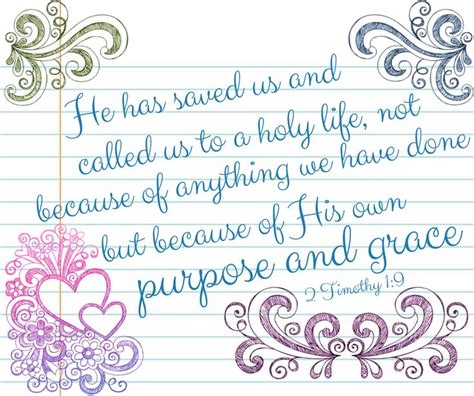 He has saved us and
called us to a holy life, not
because of anything we have done
but because of His own
purpose and grace
2 Timothy 1:9